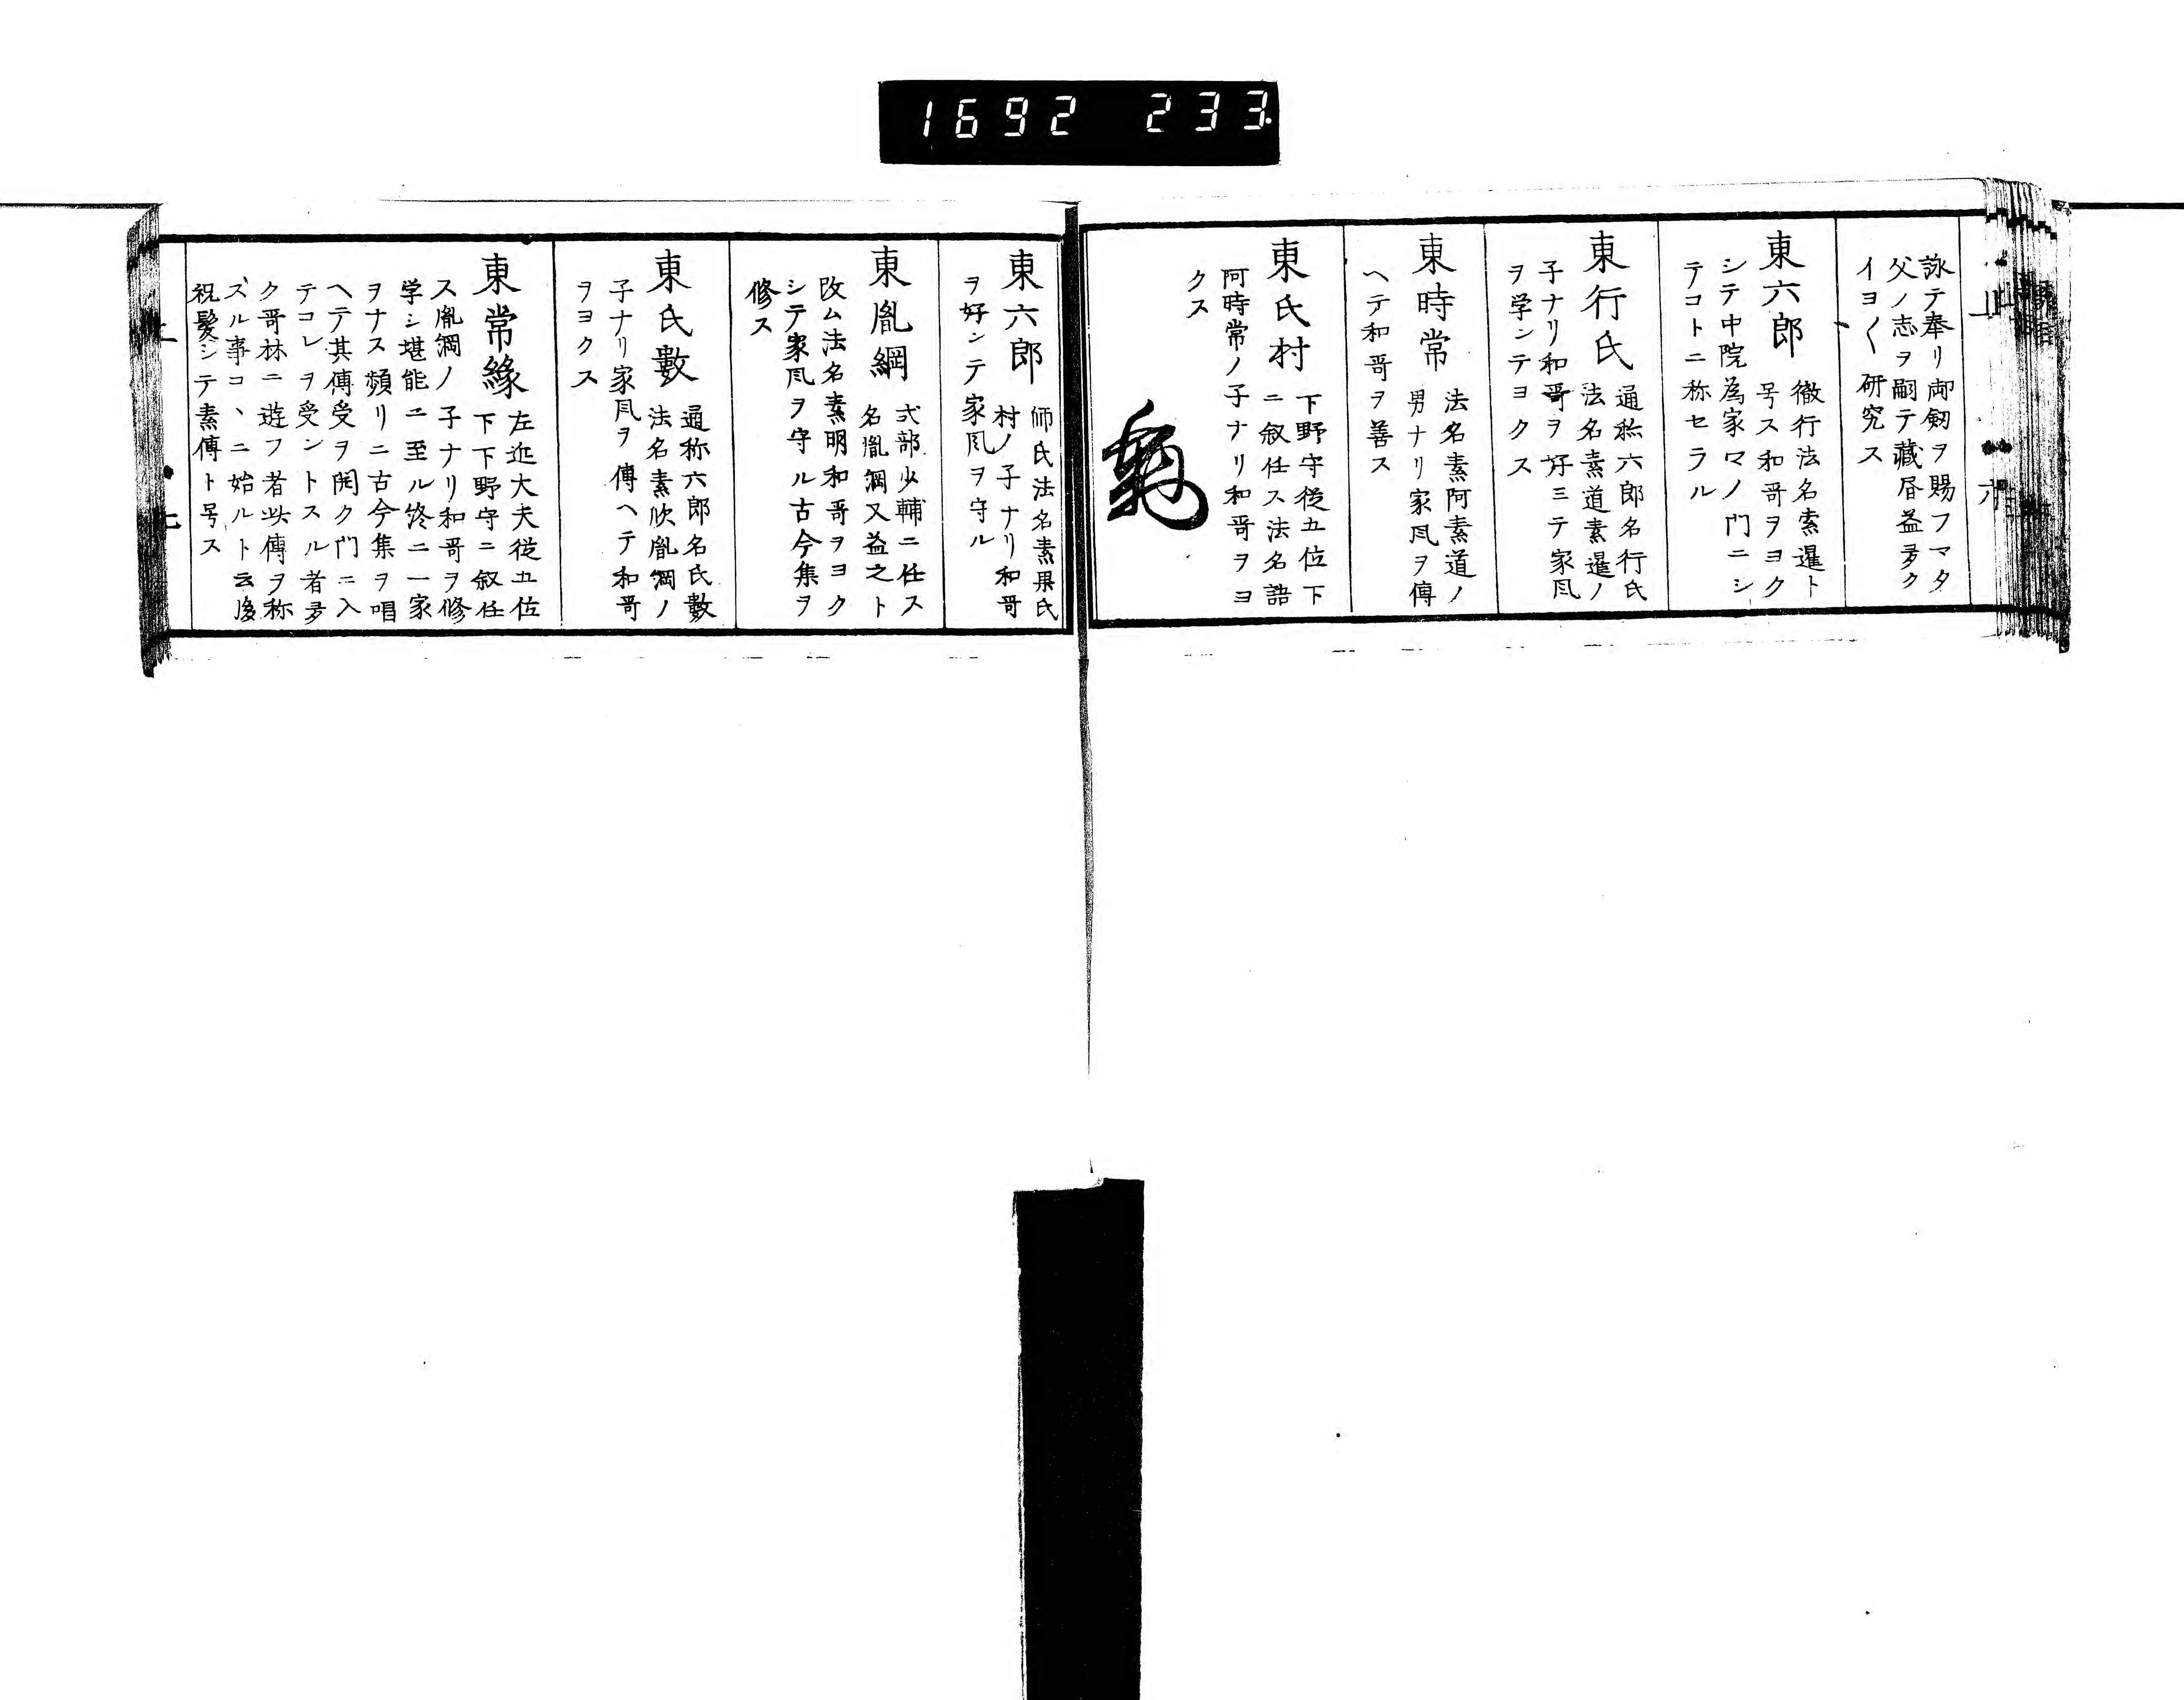 1692 233
詠テ奉リ御劔ヲ賜フマタ
父ノ志ヲ嗣テ藏昏益夛ク
イヨ〱研究ス
東六郎
徹行法名素暹ト
号ス和哥ヲヨク
シテ中院為家マノ門ニシ
テコトニ称セラル
東行氏
通称六郎名行氏
法名素道素暹ノ
子ナリ和哥ヲ好ミテ家凨
ヲ学ンテヨクス
東時常
法名素阿素道ノ
男ナリ家凨ヲ傳
ヘテ和哥ヲ善ス
東氏村
下野守従五位下
ニ叙任ス法名語
阿時常ノ子ナリ和哥ヲヨ
クス
東六郎
師氏法名素果氏
村ノ子ナリ和哥
ヲ好ンテ家凨ヲ守ル
東胤綱
式部少輔ニ任ス
名胤綱又益之ト
改ム法名素明和哥ヲヨク
シテ家凨ヲ守ル古今集ヲ
修ス
東氏數
通称六郎名氏數
法名素欣胤綱ノ
子ナリ家凨ヲ傳ヘテ和哥
ヲヨクス
東常縁
左近大夫従五位
下下野守ニ叙任
ス胤綱ノ子ナリ和哥ヲ修
学シ堪能ニ至ル終ニ一家
ヲナス頻リニ古今集ヲ唱
ヘテ其傳受ヲ開ク門ニ入
テコレヲ受ントスル者夛
ク哥林ニ遊フ者此傳ヲ称
ズル事コヽニ始ルト云後
祝髪シテ素傳ト号ス